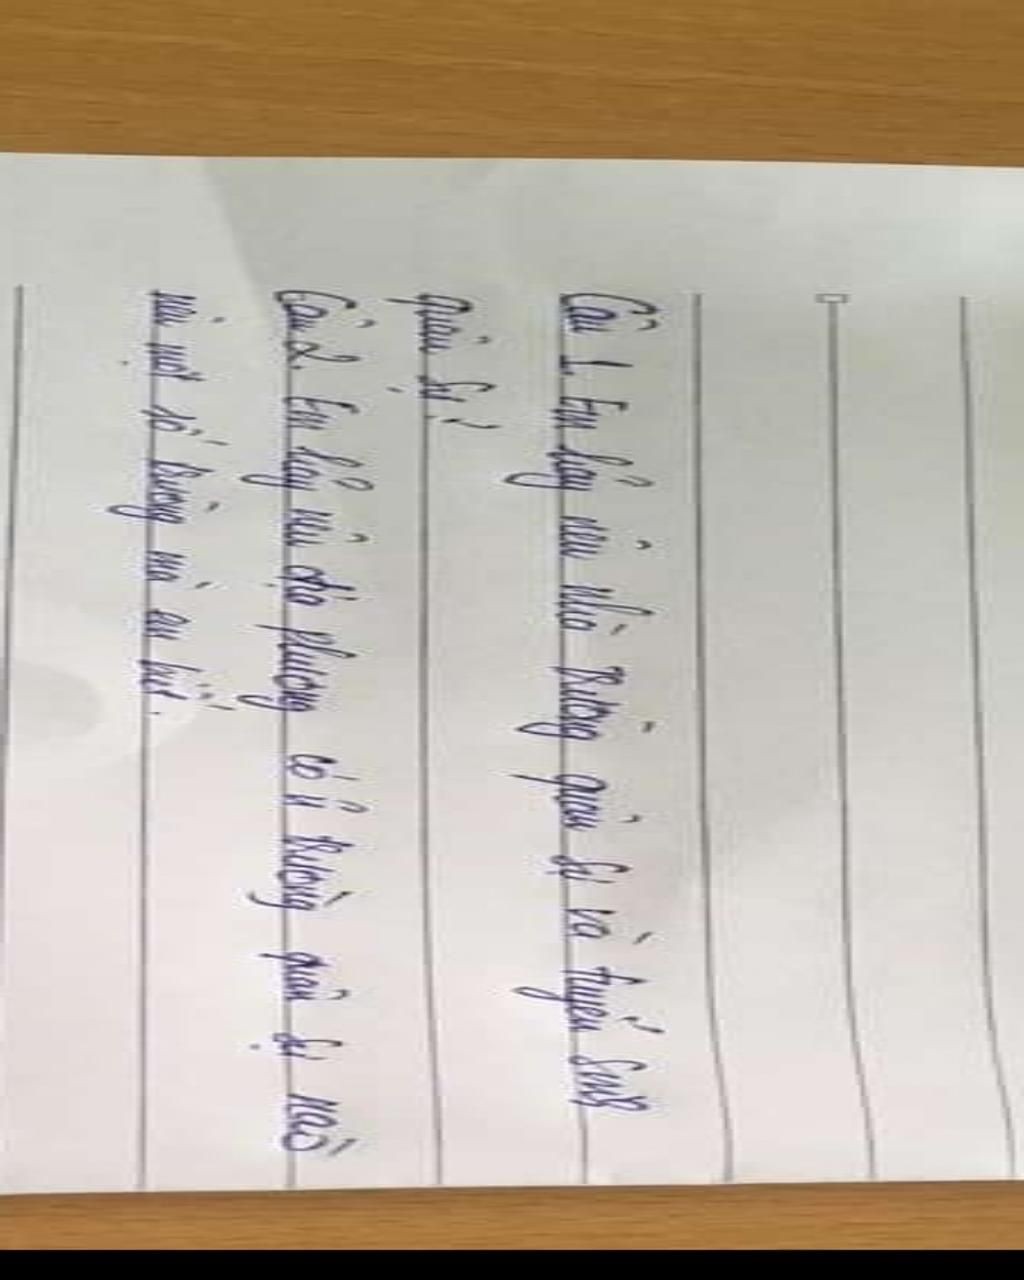 Câu 1. Em hãy nêu nhà trường quân sự và tuyển sinh
quân sự.
Câu 2. Em hãy nêu địa phương có ii trường quân sự nào
nêu một số trường mà em biết.